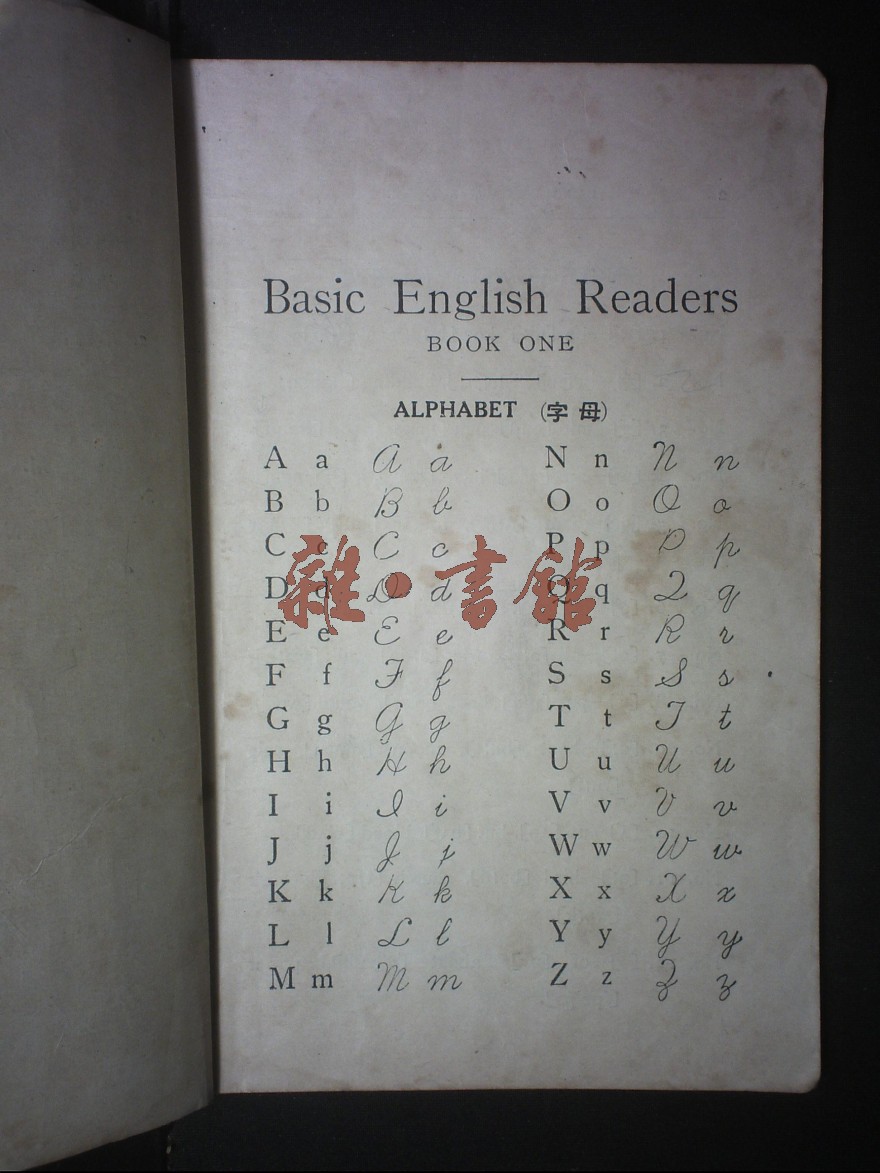 Basic English Readers
BOOK ONE
ALPHABET (字母)
A a A a N n N n
B b B b O o O o
C c C c P p P p
D d D d Q q Q q
E e E e R r R r
F f F f S s S s
G g G g T t T t
H h H h U u U u
I i I i V v V v
J j J j W w W w
K k K k X x X x
L l L l Y y Y y
M m M m Z z Z z
雜·書館